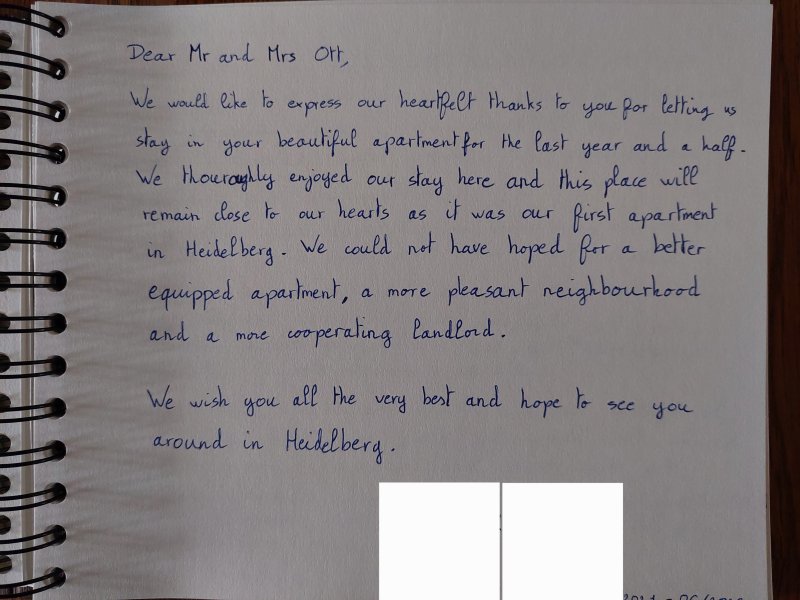 Dear Mr and Mrs Ott,
We would like to express our heartfelt thanks to you for letting us
stay in your beautiful apartment for the last year and a half.
We thouroughly enjoyed our stay here and this place will
remain close to our hearts as it was our first apartment
in Heidelberg. We could not have hoped for a better
equipped apartment, a more pleasant neighbourhood
and a more cooperating landlord.
We wish you all the very best and hope to see you
around in Heidelberg.